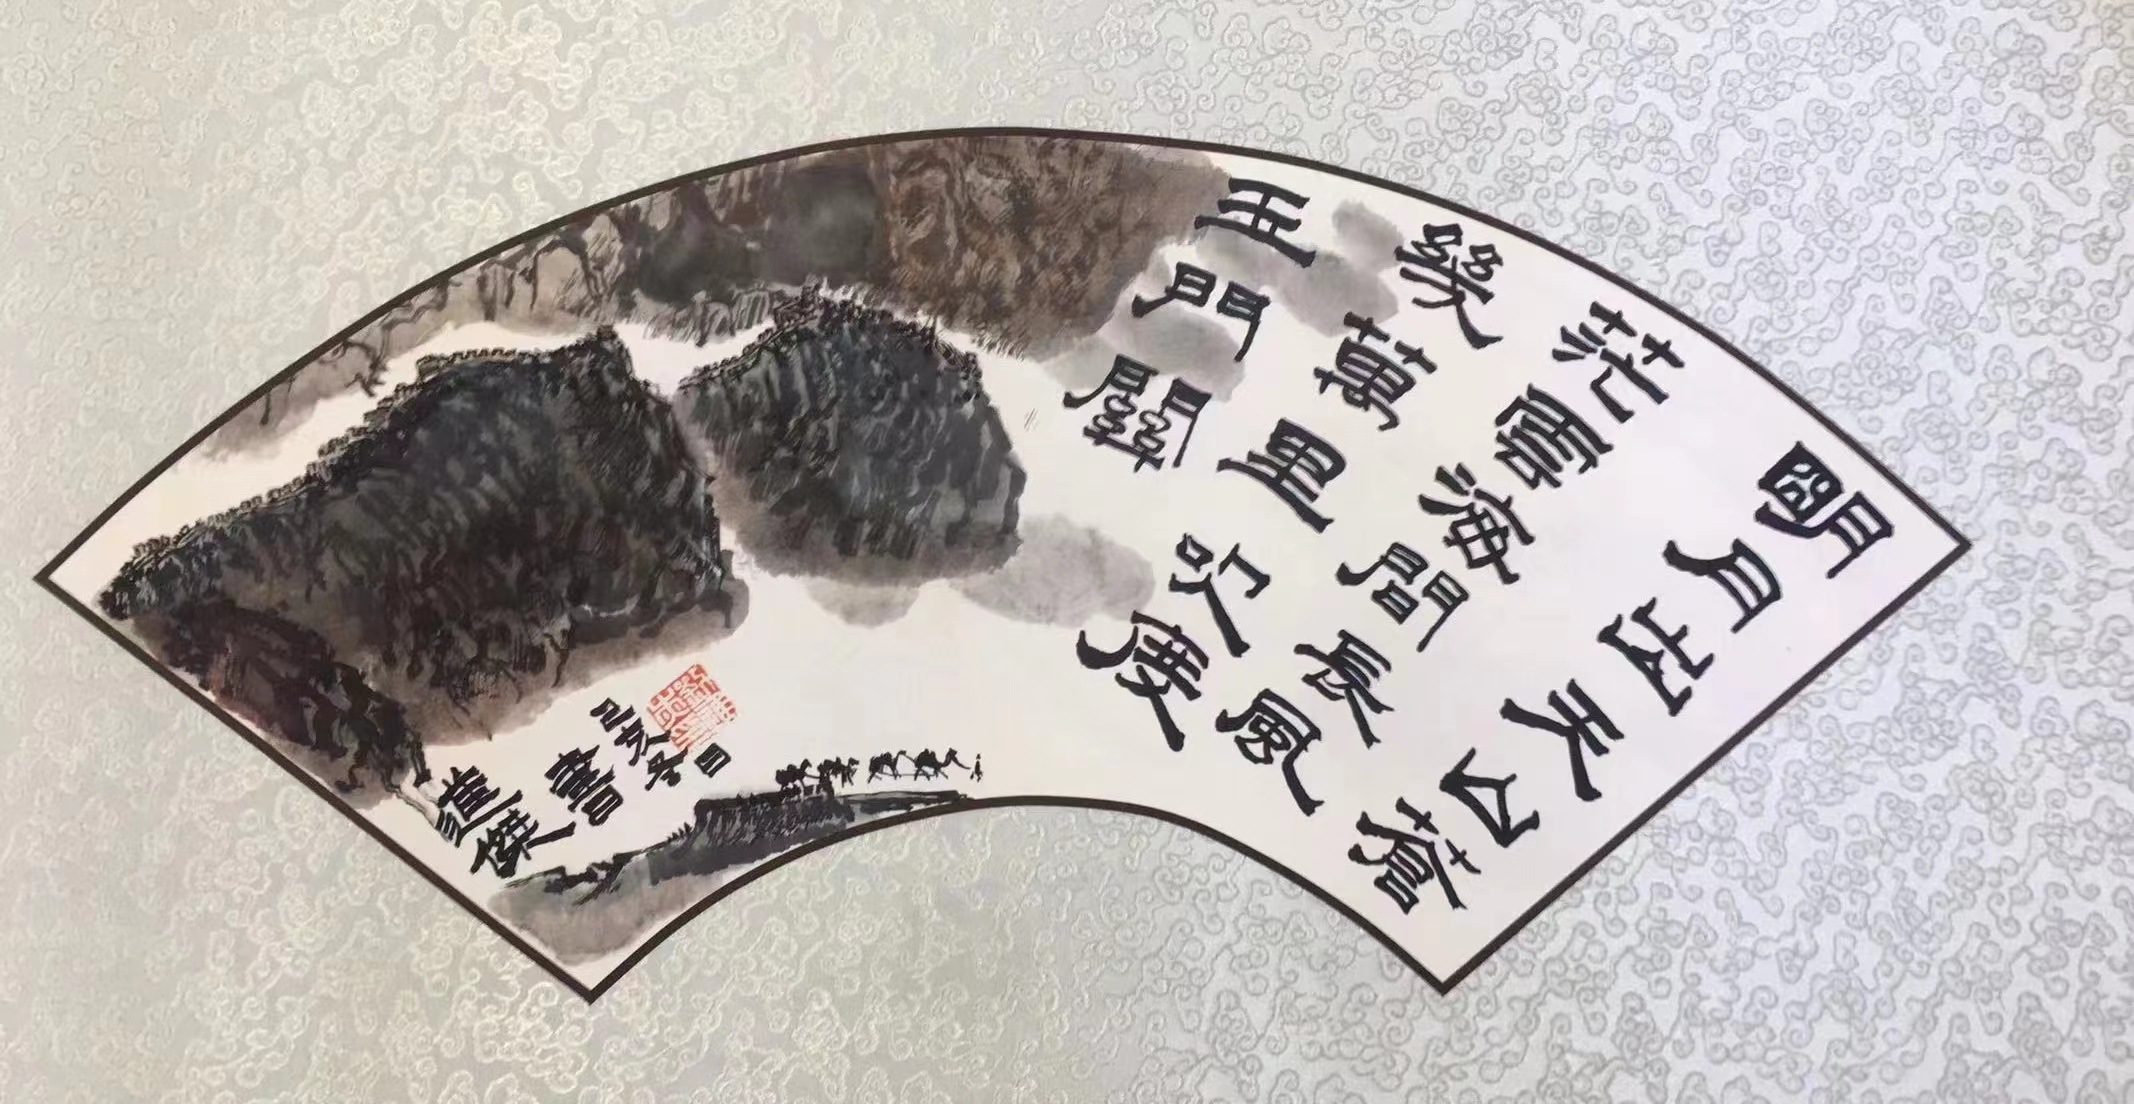 明月出天山蒼
茫雲海間長風
幾萬里吹度
玉門關
己亥
書